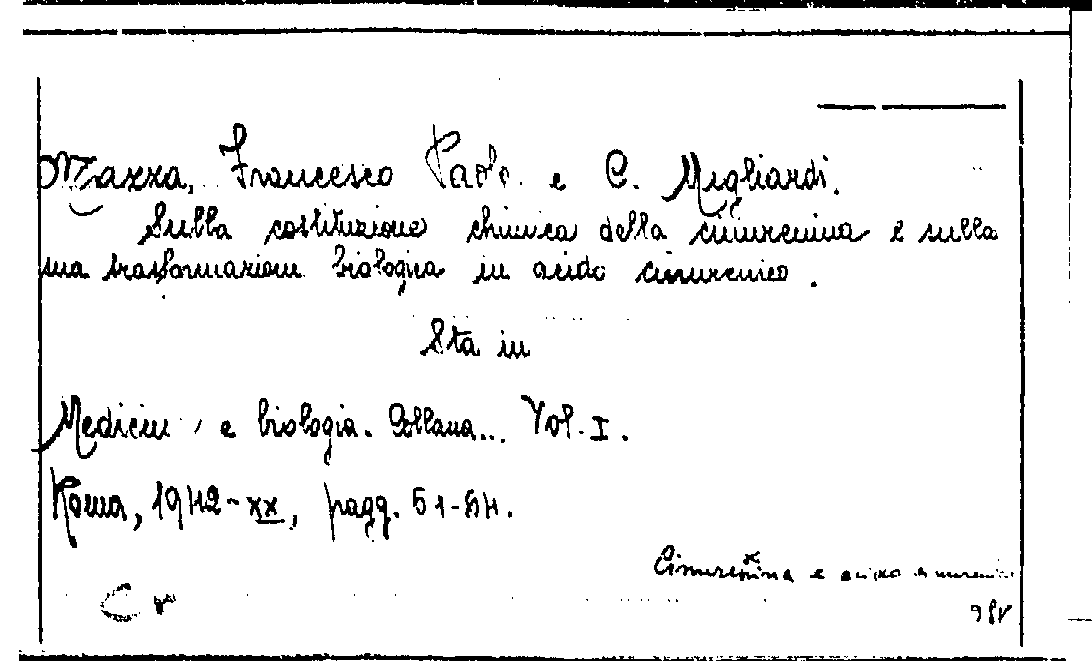 Mazza, Francesco Paolo e C. Migliardi.
Sulla costituzione chimica della cinurenina e sulla
sua trasformazione biologica in acido cinurenico.
Sta in
Medicina e biologia. Collana... Vol. I.
Roma, 1942-XX, pagg. 51-84.
Cinurenina e acido cinurenico